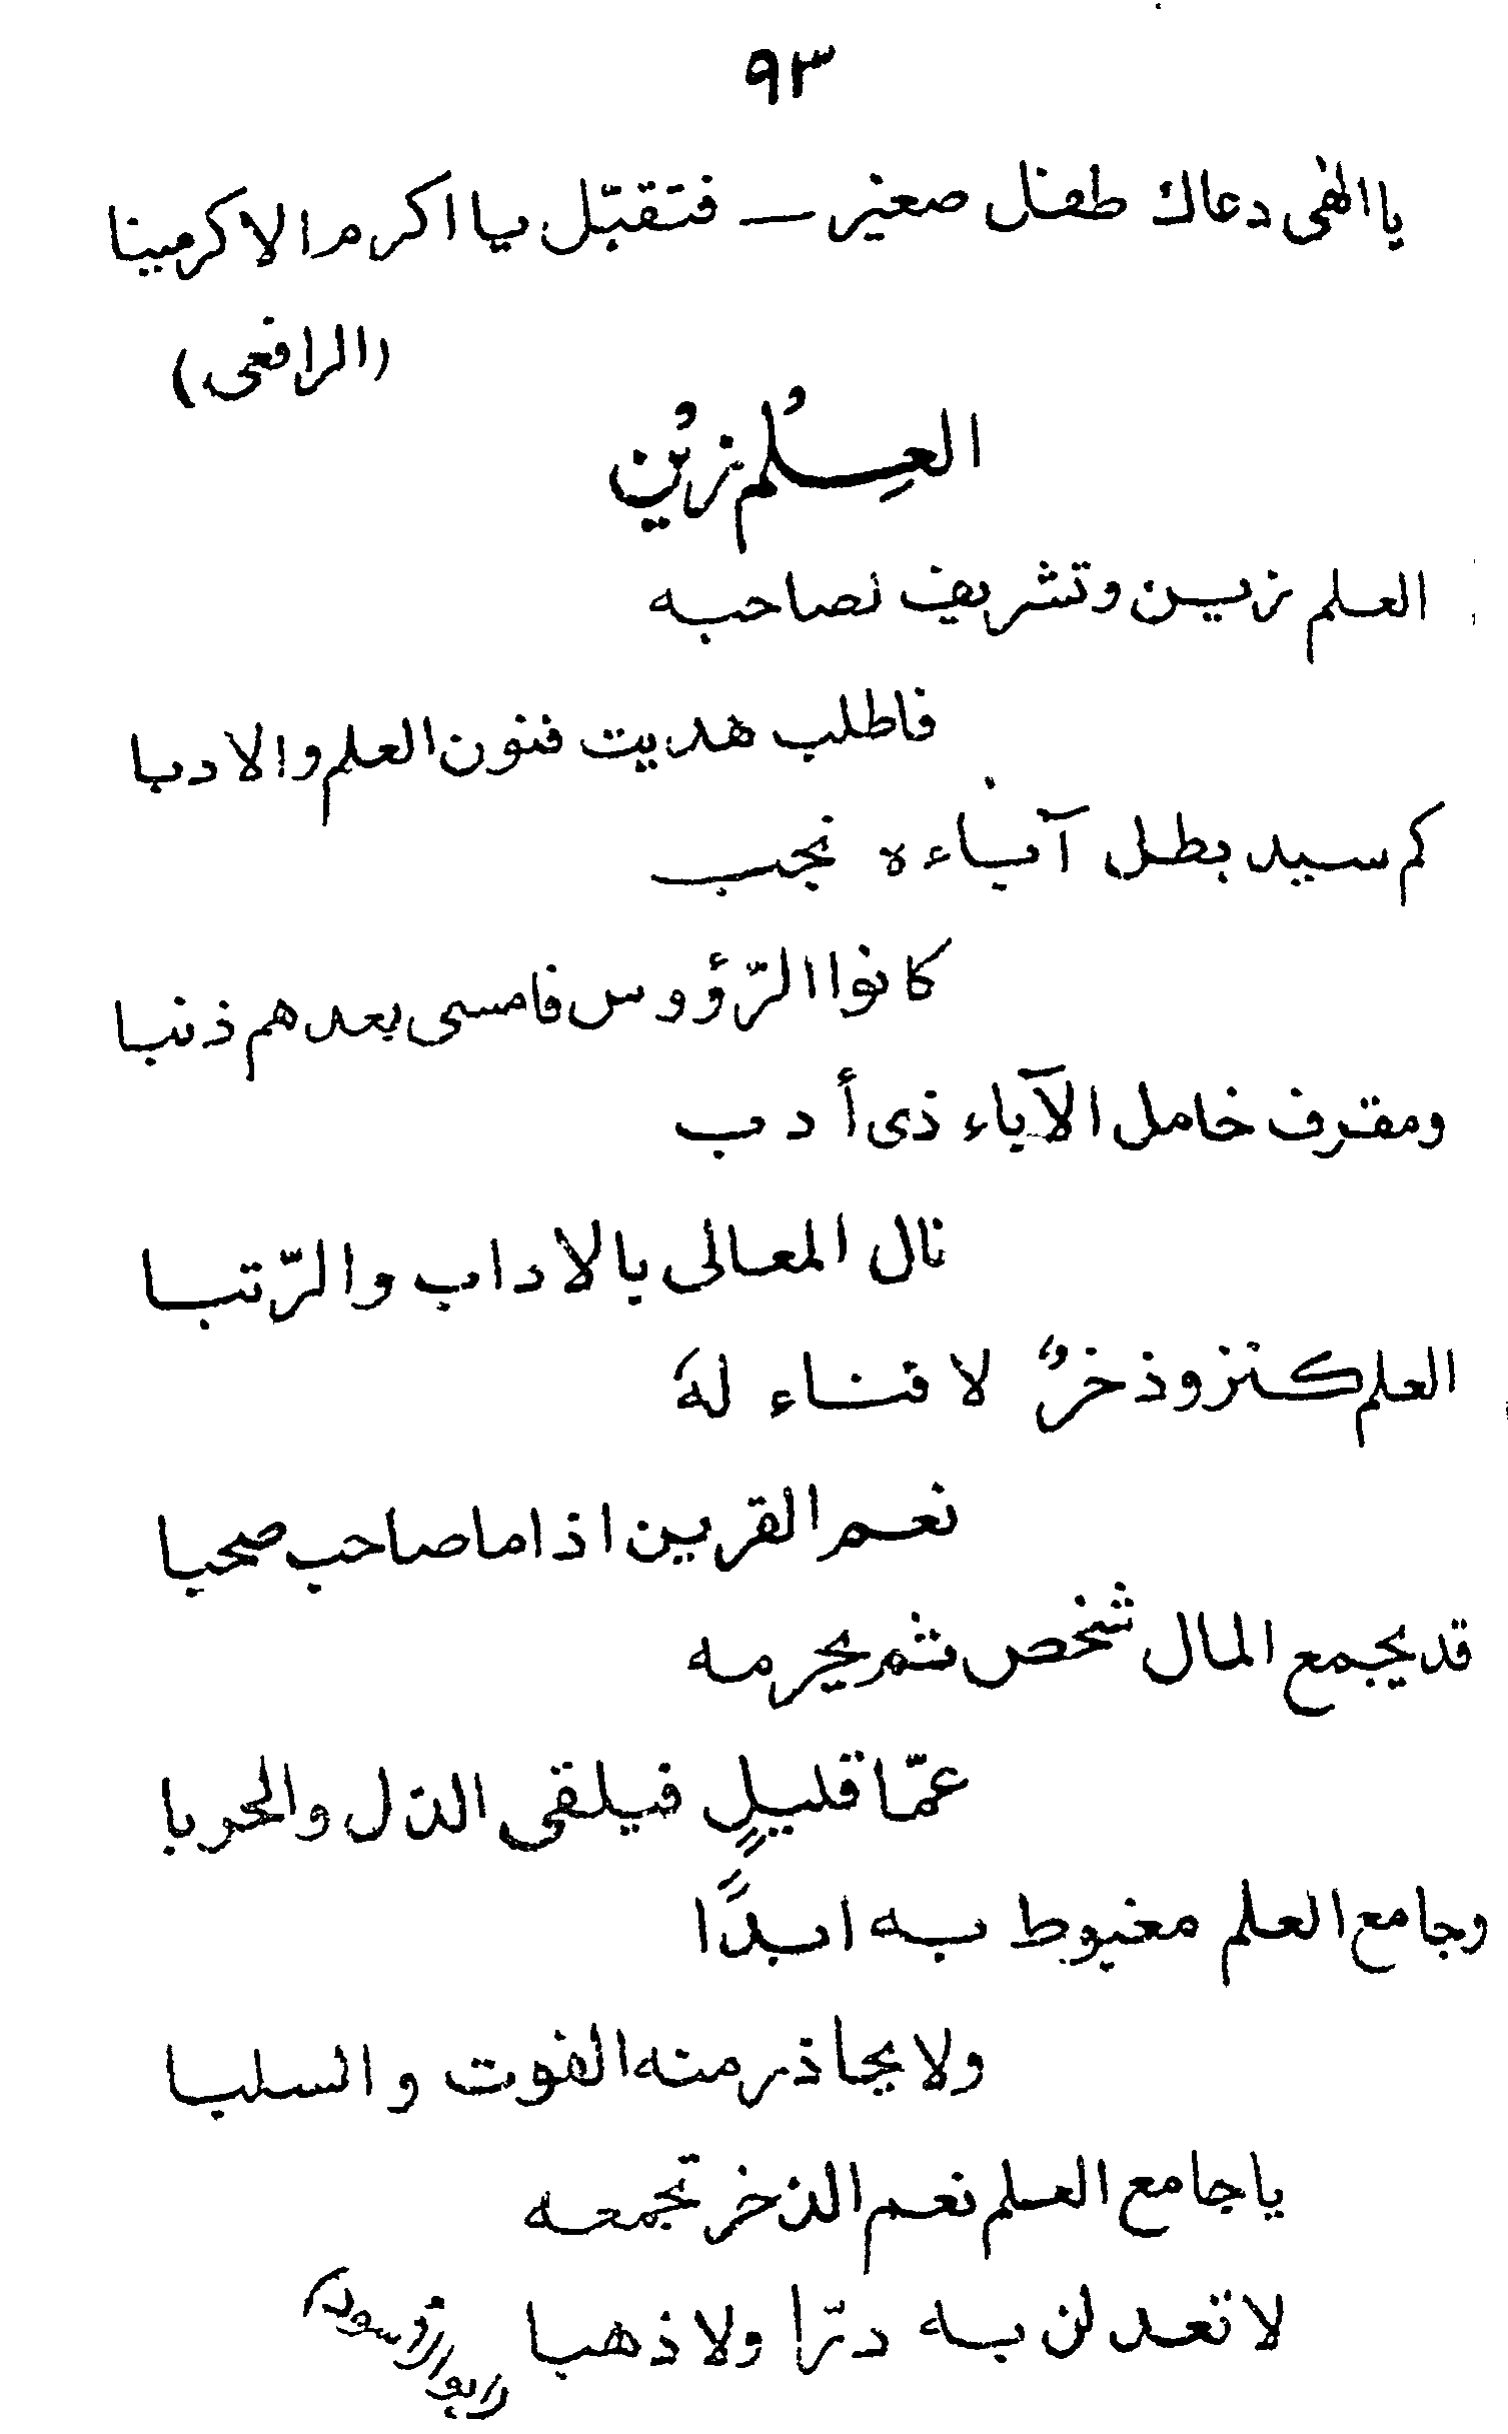 ٩٣
يا الهى دعاك طفل صغير — فتقبّل يا اكرم الاكرمينا
(الرافعى)
العِلْمُ زَيْنٌ
العلم زين وتشريف لصاحبه
فاطلب هديت فنون العلم والادبا
كم سيد بطل آباءه نجب
كانوا الرّؤوس فامسى بعدهم ذنبا
ومقرف خامل الآباء ذى أدب
نال المعالى بالاداب والرّتبا
العلم كنز وذخرٌ لا فناء له
نعم القرين اذا ما صاحب صحبا
قد يجمع المال شخص ثم يحرمه
عمّا قليلٍ فيلقى الذل والحربا
وجامع العلم مغبوط به ابدًا
ولا يحاذر منه الفوت والسلبا
يا جامع العلم نعم الذخر تجمعه
لا تعدلن به درّا ولا ذهبا (ابو الأسود)